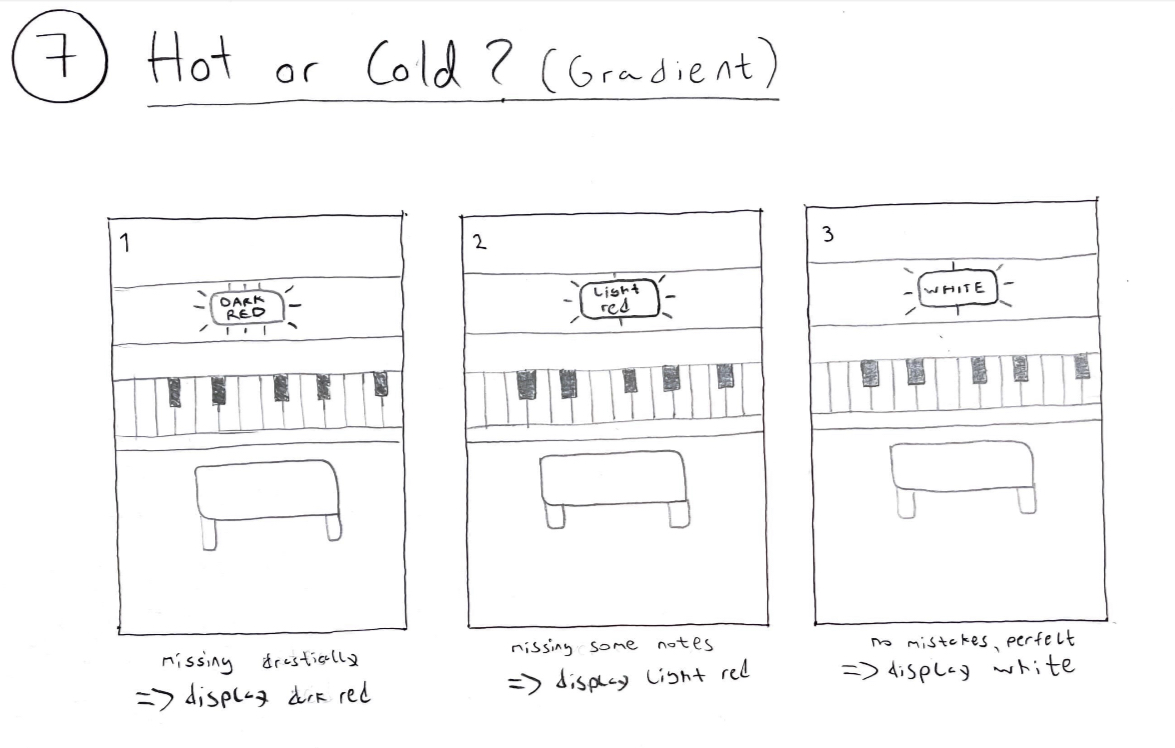 7 Hot or Cold? (Gradient)
1
DARK
RED
missing drastically
=> display dark red
2
Light
red
missing some notes
=> display light red
3
WHITE
no mistakes, perfect
=> display white